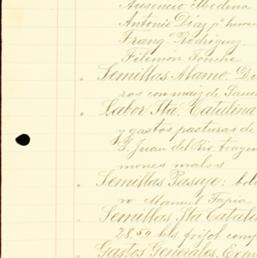 Asencio Medina
Antonio Diaz pª
Franᶜᵒ Rodriguez
Filemon
Semillas Mano: Do
ros con maiz de
Labor Sta. Catalina
y gastos pasturas de
S. Juan del Rio
mones malos
Semillas Pasaje:
ro Manuel Tapia
Semillas Sta Catal
28.50 frijol comp
Gastos Generales. Exp